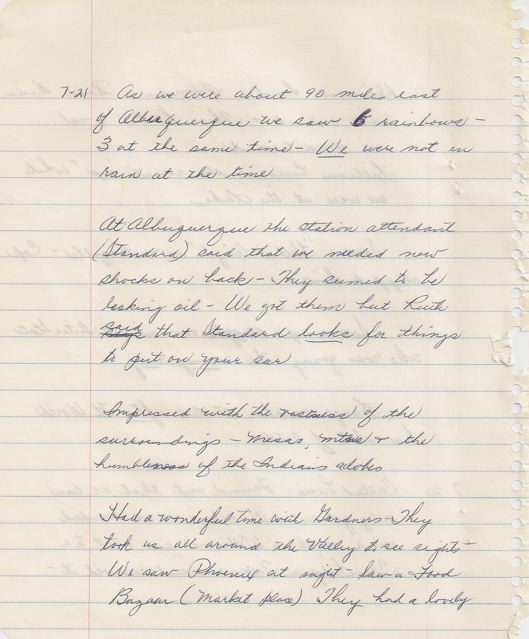 7-21 As we were about 90 mile east
of Albuquerque we saw 6 rainbows -
3 at the same time - We were not in
rain at the time
At Albuquerque the station attendant
(Standard) said that we needed new
shocks on back - They seemed to be
leaking oil - We got them but Ruth
said that Standard looks for things
to put on your car
Impressed with the vastness of the
surroundings - Mesas, mtns & the
humbleness of the Indians adobes
Had a wonderful time with Gardners - They
took us all around the Valley to see sights -
We saw Phoenix at night - Saw a Food
Bazaar (Market place) They had a lovely